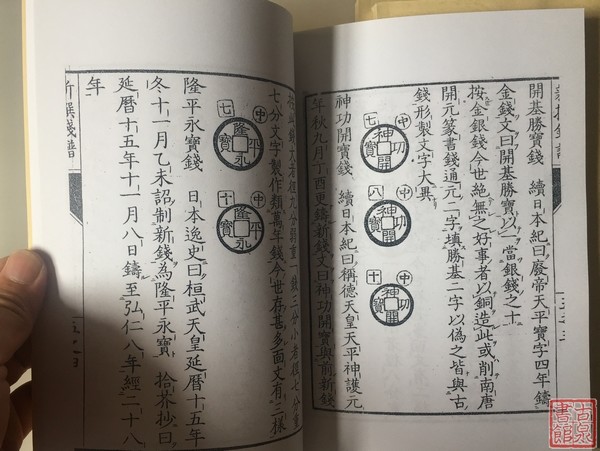 開基勝寶錢 續日本紀曰廢帝天平寶字四年鑄
金錢文曰開基勝寶以一當銀錢之十
按金銀錢今世絶無之好事者以銅造此或削南唐
開元篆書錢通元二字填勝基二字以偽之皆與古
錢形製文字大異
七 中 神功開寶
八 中 神功開寶
十 中 神功開寶
神功開寶錢 續日本紀曰稱德天皇天平神護元
年秋九月丁酉更鑄新錢文曰神功開寶與前新錢
七分文字製作類萬年錢今世存甚多面文有三樣
七 中 隆平永寶
十 中 隆平永寶
隆平永寶錢 日本逸史曰桓武天皇延暦十五年
冬十一月乙未詔制新錢為隆平永寶 拾芥抄曰
延暦十五年十一月八日鑄至弘仁八年經二十八
年
新撰錢譜
古泉書館